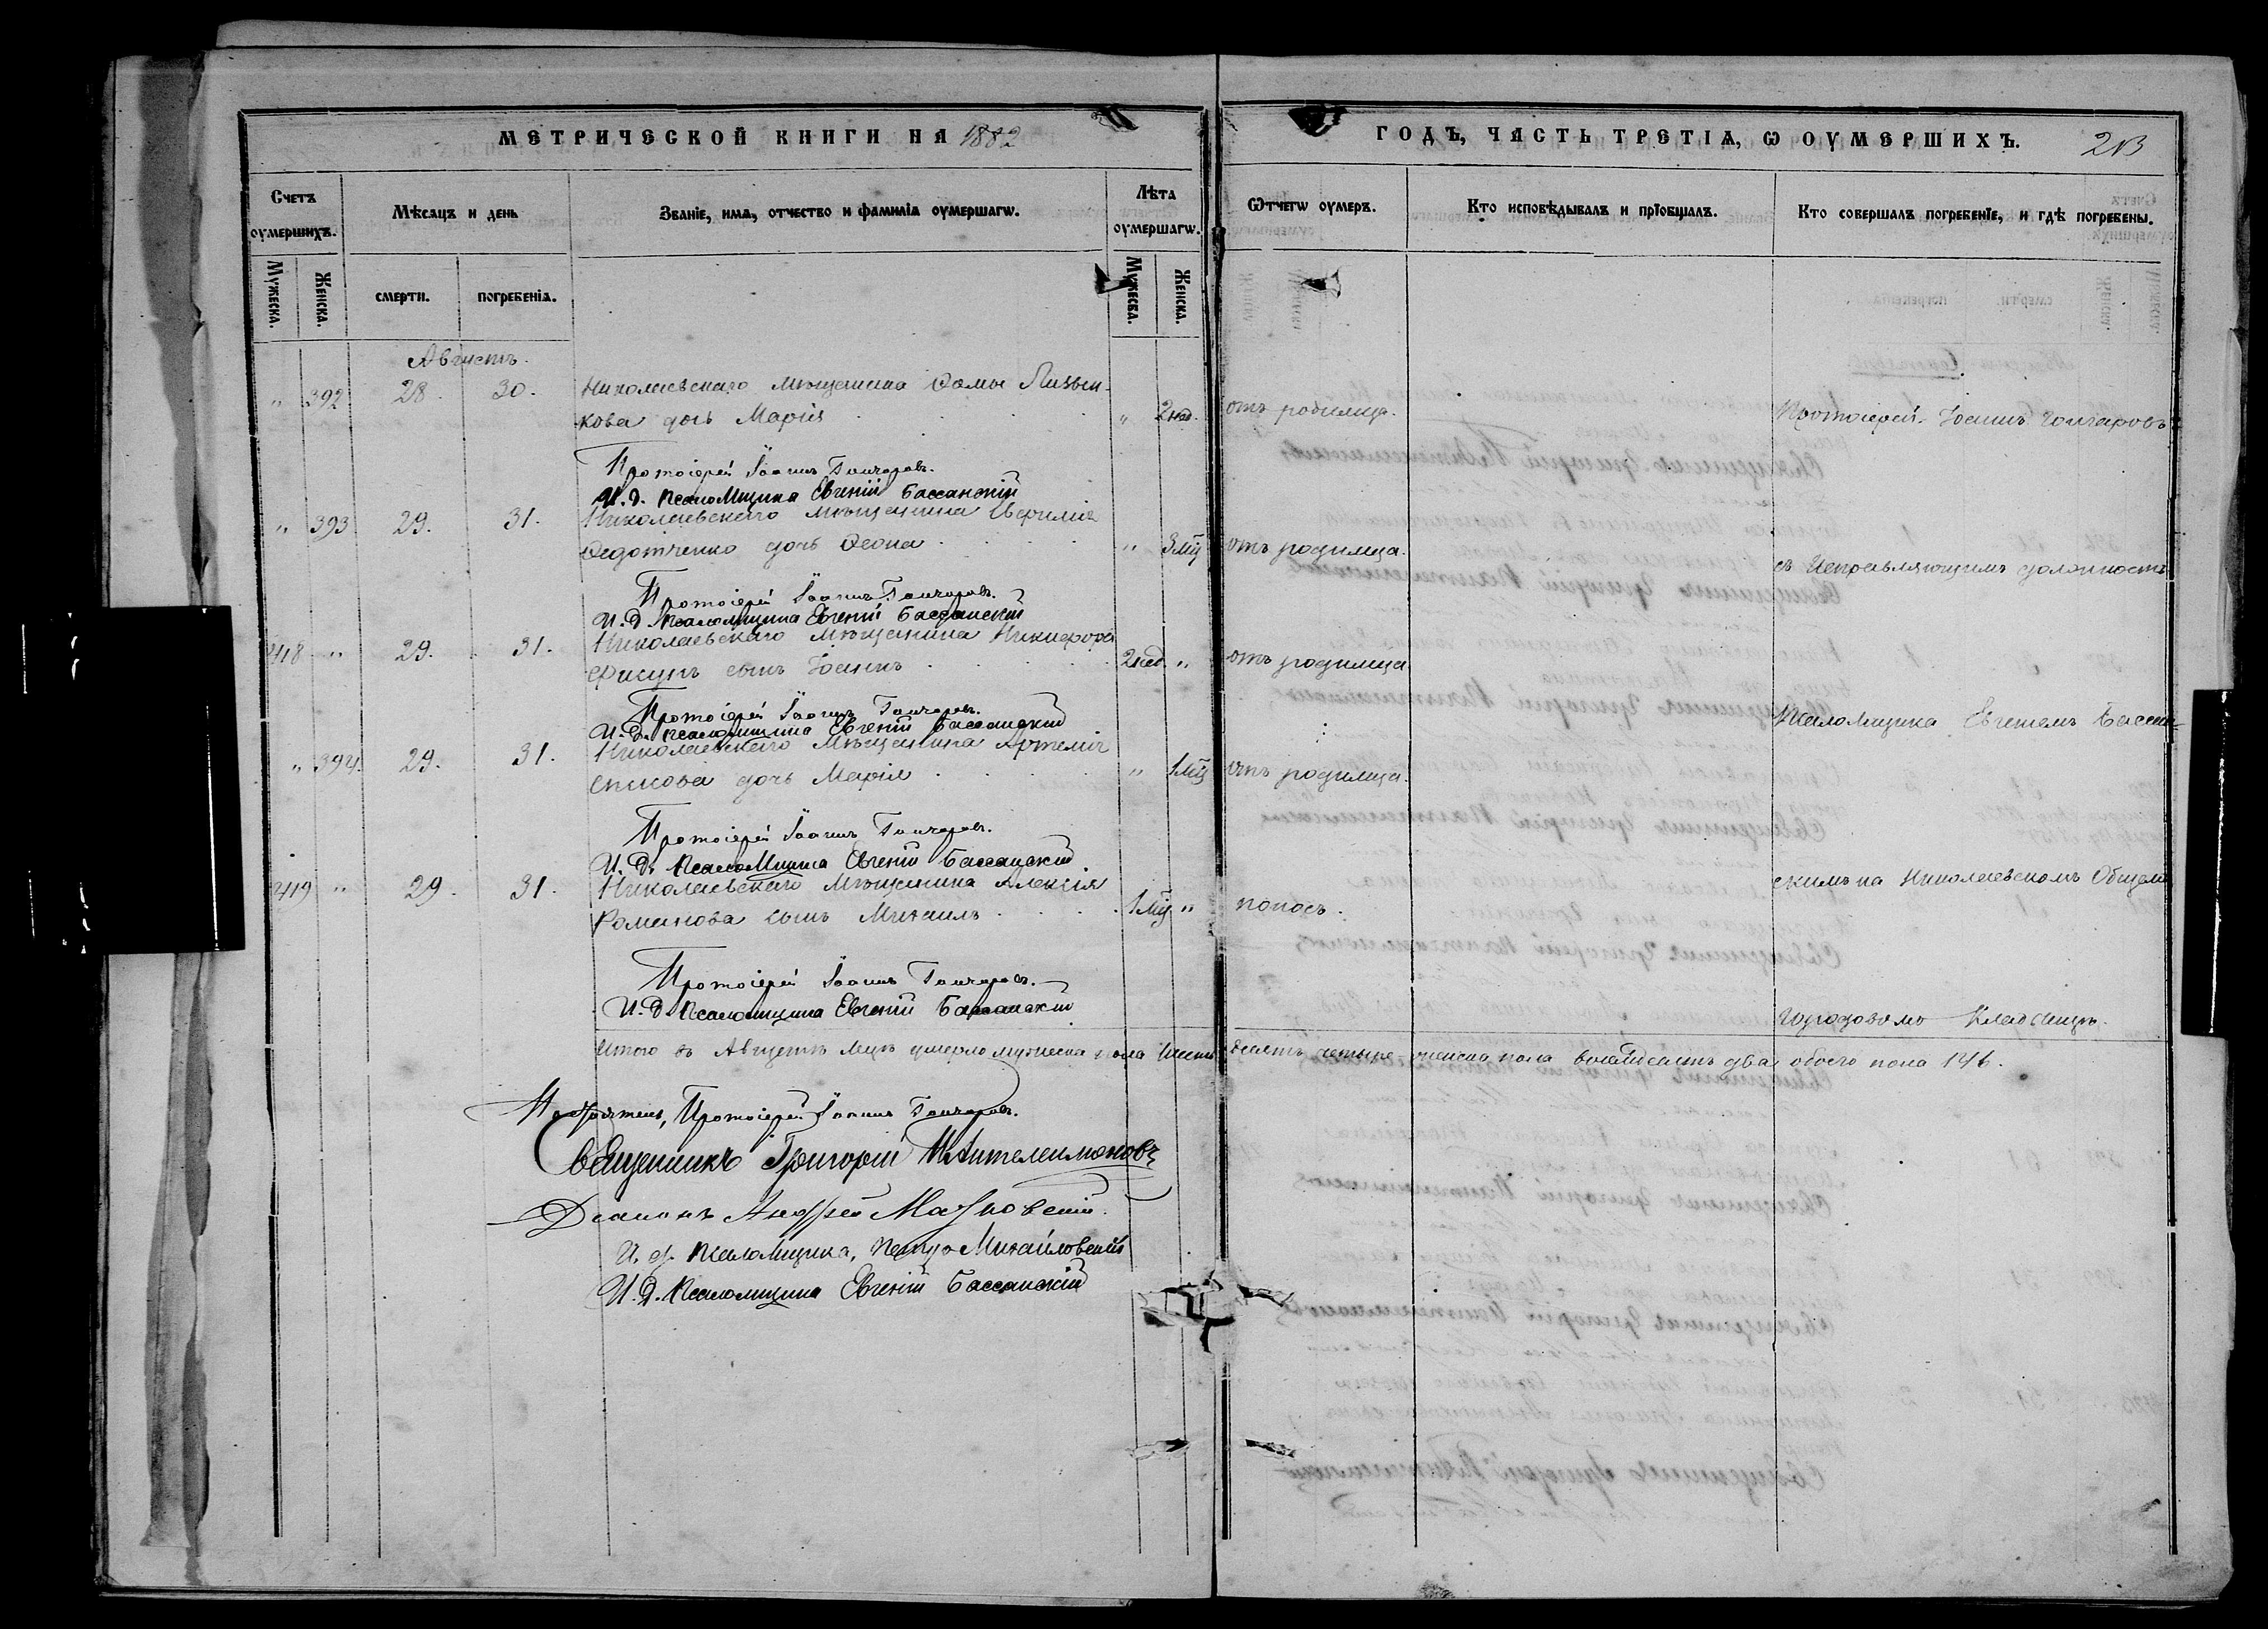 МЕТРИЧЕСКОЙ КНИГИ НА 1882
ГОДЪ, ЧАСТЬ ТРЕТІѦ, Ѡ ОУМЕРШИХЪ.
Счетъ оумершихъ.
Мѣсяцъ и день
Званіе, имѧ, отчество и фамиліѧ оумершагѡ.
Лѣта оумершагѡ.
Ѿтчегѡ оумеръ.
Кто исповѣдывалъ и пріобщалъ.
Кто совершалъ погребеніе, и гдѣ погребены.
Мужеска.
Женска.
смерти.
погребеніѧ.
Мужеска.
Женска.
Августъ.
" 392 28. 30. Николаевскаго мѣщанина Ѳомы
кова дочь Марія " 2 нед. отъ родимца. Протоіерей Іоаннъ Гончаровъ
Протоіерей Іоаннъ Гончаровъ.
И. д. псаломщика Евгеній Бассанскій
" 393 29. 31. Николаевскаго мѣщанина Евфимія
Федотченко дочь Ѳеона " 3 мц отъ родимца.
съ Исправляющимъ должность
Протоіерей Іоаннъ Гончаровъ.
И. д. псаломщика Евгеній Бассанскій
418 " 29. 31. Николаевскаго мѣщанина Никифора
Фисунъ сынъ Іоаннъ 2 нед. " отъ родимца
Протоіерей Іоаннъ Гончаровъ.
Псаломщика Евгеніемъ Бассан-
И. д. псаломщика Евгеній Бассанскій
" 394. 29. 31. Николаевскаго Мѣщанина Артемія
дочь Марія " 1 мц отъ родимца.
Протоіерей Іоаннъ Гончаровъ.
И. д. псаломщика Евгеній Бассанскій
419 " 29. 31. Николаевскаго Мѣщанина Алексія
скимъ на Николаевскомъ Общемъ
Романова сынъ Михаилъ 1 мц " поносъ.
Протоіерей Іоаннъ Гончаровъ.
И. д. псаломщика Евгеній Бассанскій
Городовомъ Кладбищѣ.
Итого въ Августѣ мцѣ умерло мужеска пола шестьдесятъ четыре женска пола восемдесятъ два обоего пола 146.
Настоятель, Протоіерей Іоаннъ Гончаровъ.
Священникъ Григорій Пантелеимоновъ
Діаконъ Андрей
И. д. псаломщика, Петръ Михайловскій
И. д. псаломщика Евгеній Бассанскій